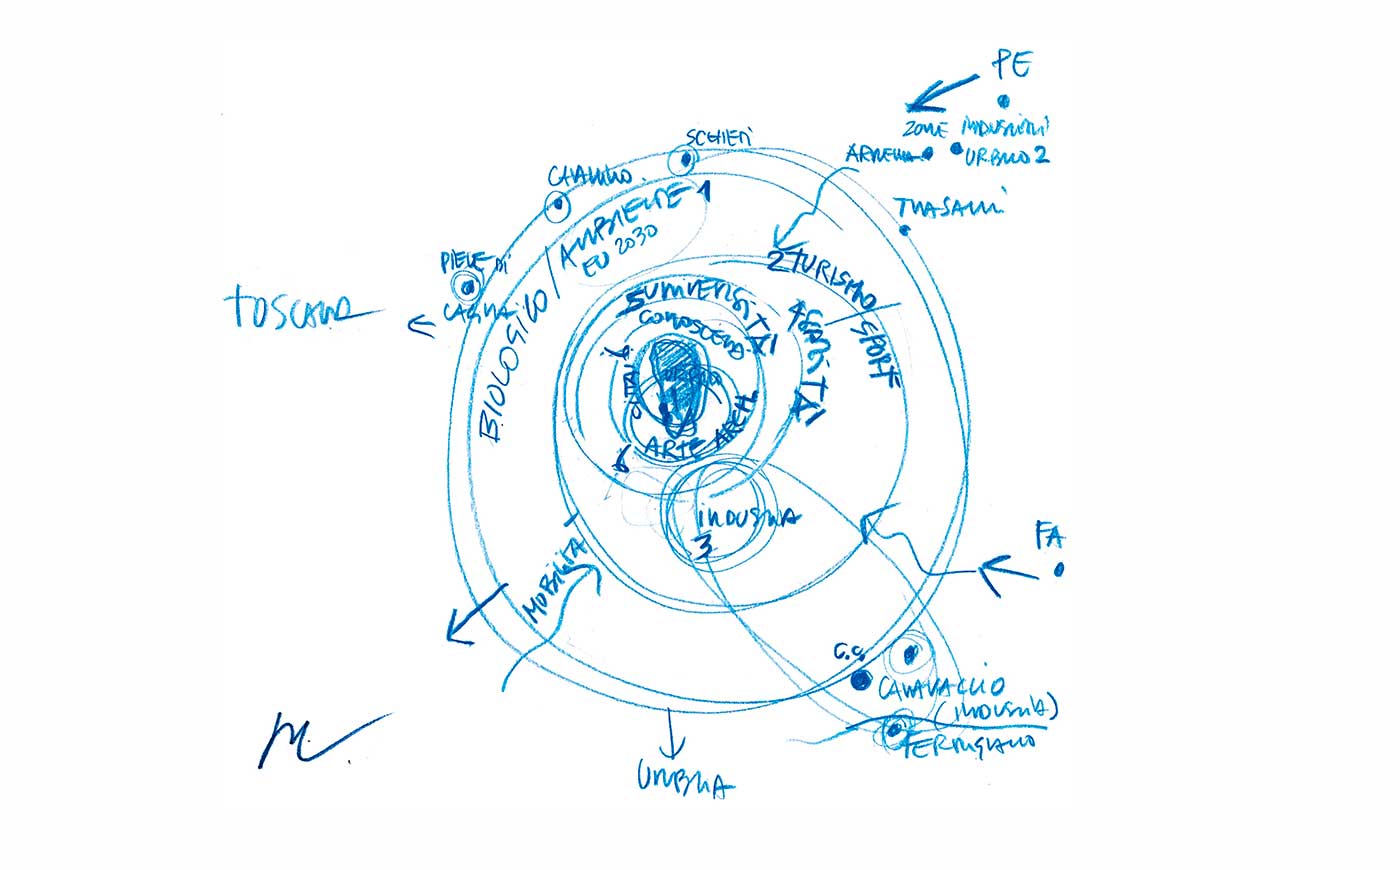 PE
ZONE INDUSTRIALI
URBINO 2
SCHIETI
TRASANNI
PIEVE DI
CAGNA
AMBIENTE 1
EU 2030
BIOLOGICO /
TOSCANA
2 TURISMO / SPORT
5 UNIVERSITÀ
CONOSCENZA
4 SANITÀ
URBINO
ARTE ARCH.
INDUSTRIA
3
MOBILITÀ
FA
C.G.
CANAVACCIO
(INDUSTRIA)
FERMIGNANO
UMBRIA